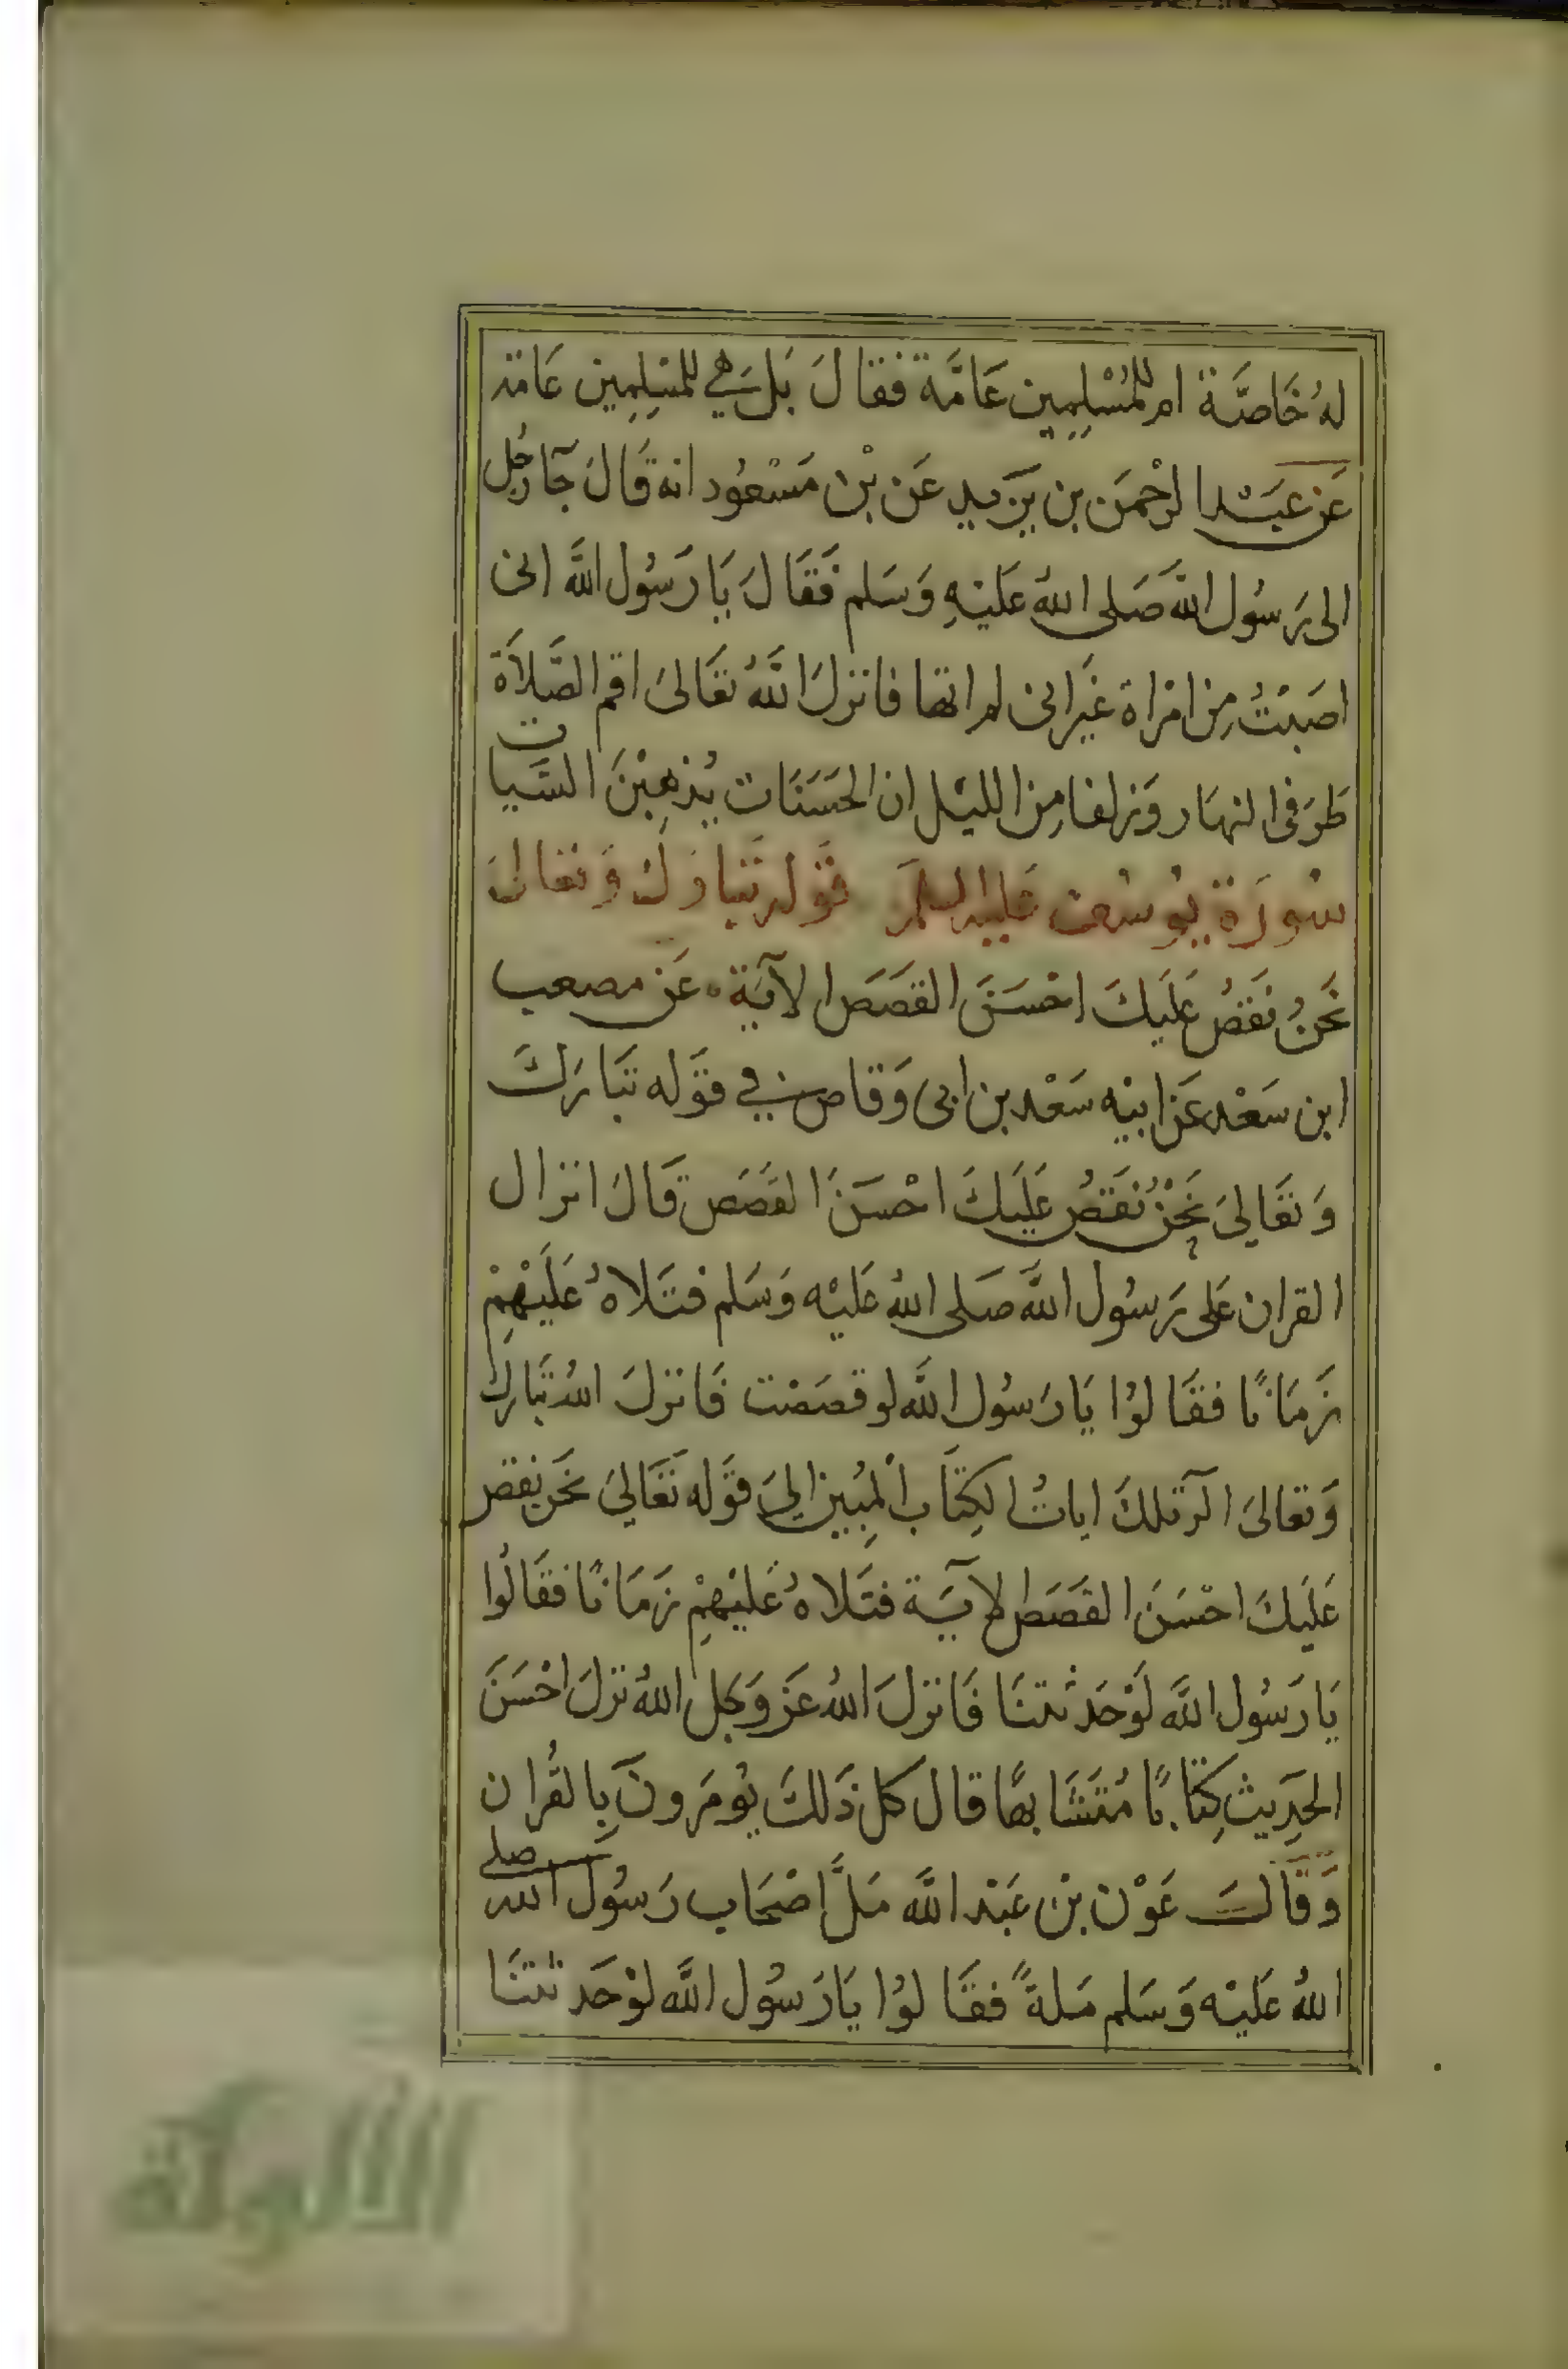 لهُ خَاصَّة ام للمُسْلِمِين عَامَّة فقالَ بَل هِي للمسِلِمِين عَامة
عَن عَبْد الرحْمَن بن يَزيد عَن بْن مَسْعُود انه قَالَ جَآ رجُل
الى رَسُول اللَّه صَلى اللهُ عَليْهِ وَسَلم فَقَالَ يَا رَسُول اللَّه انى
اصَبْتُ مِن امْراة غَير انى لم اتها فانزلَ اللَّهُ تعَالىَ اقم الصَّلاَة
طرَفى النهَار وَزلفا مِن الليْل ان الحَسَنَات يُذهِبْنَ السَّيات
سُورَة يُوسُف عَليه السلم قَوله تَبَارَك وَتعَالىَ
نَحْنُ نَقصُ عَلَيكَ احْسَنَ القصَصَ الآيَة عَن مصعب
ابن سَعْد عَن ابيْه سَعْد بن ابى وَقاص فِي قوَله تبَارَكَ
وَتعَالىَ نَحْنُ نَقصُ عَلَيكَ احْسَنَ القصَصَ قَالَ انزال
القران عَلى رَسُول اللَّه صَلى اللهُ عَليْه وَسَلم فتَلاهُ عَلَيْهِمْ
زَمَانًا فقَالوُا يَا رَسُول اللَّه لو قصَصْت فَانزلَ اللهُ تَبَارك
وَتعالىَ الر تلكَ اياتُ الكِتَاب المبُين اليَ قوَله تَعَاليَ نحَن نقص
عَلَيكَ احْسَنَ القَصَصَ الآيَة فتَلاهُ عَليْهِمْ زَمَانًا فقَالُوا
يَا رَسُول اللَّه لَوْ حَدثتنَا فَانزلَ اللهُ عَز وَجَل اللهُ نزلَ احْسَنَ
الحَدِيث كِتَابًا مُتَشَابهًا قال كل ذَلكَ يُومَرونَ بِالقُران
وَقَالَ عَوْن بْن عَبْد اللَّه مَلَّ اصْحَاب رَسُول الله صلى
اللهُ عَليْه وَسَلم مَلةً فقَالوُا يَا رَسُول اللَّه لوْ حَدثتنَا
الألوكة